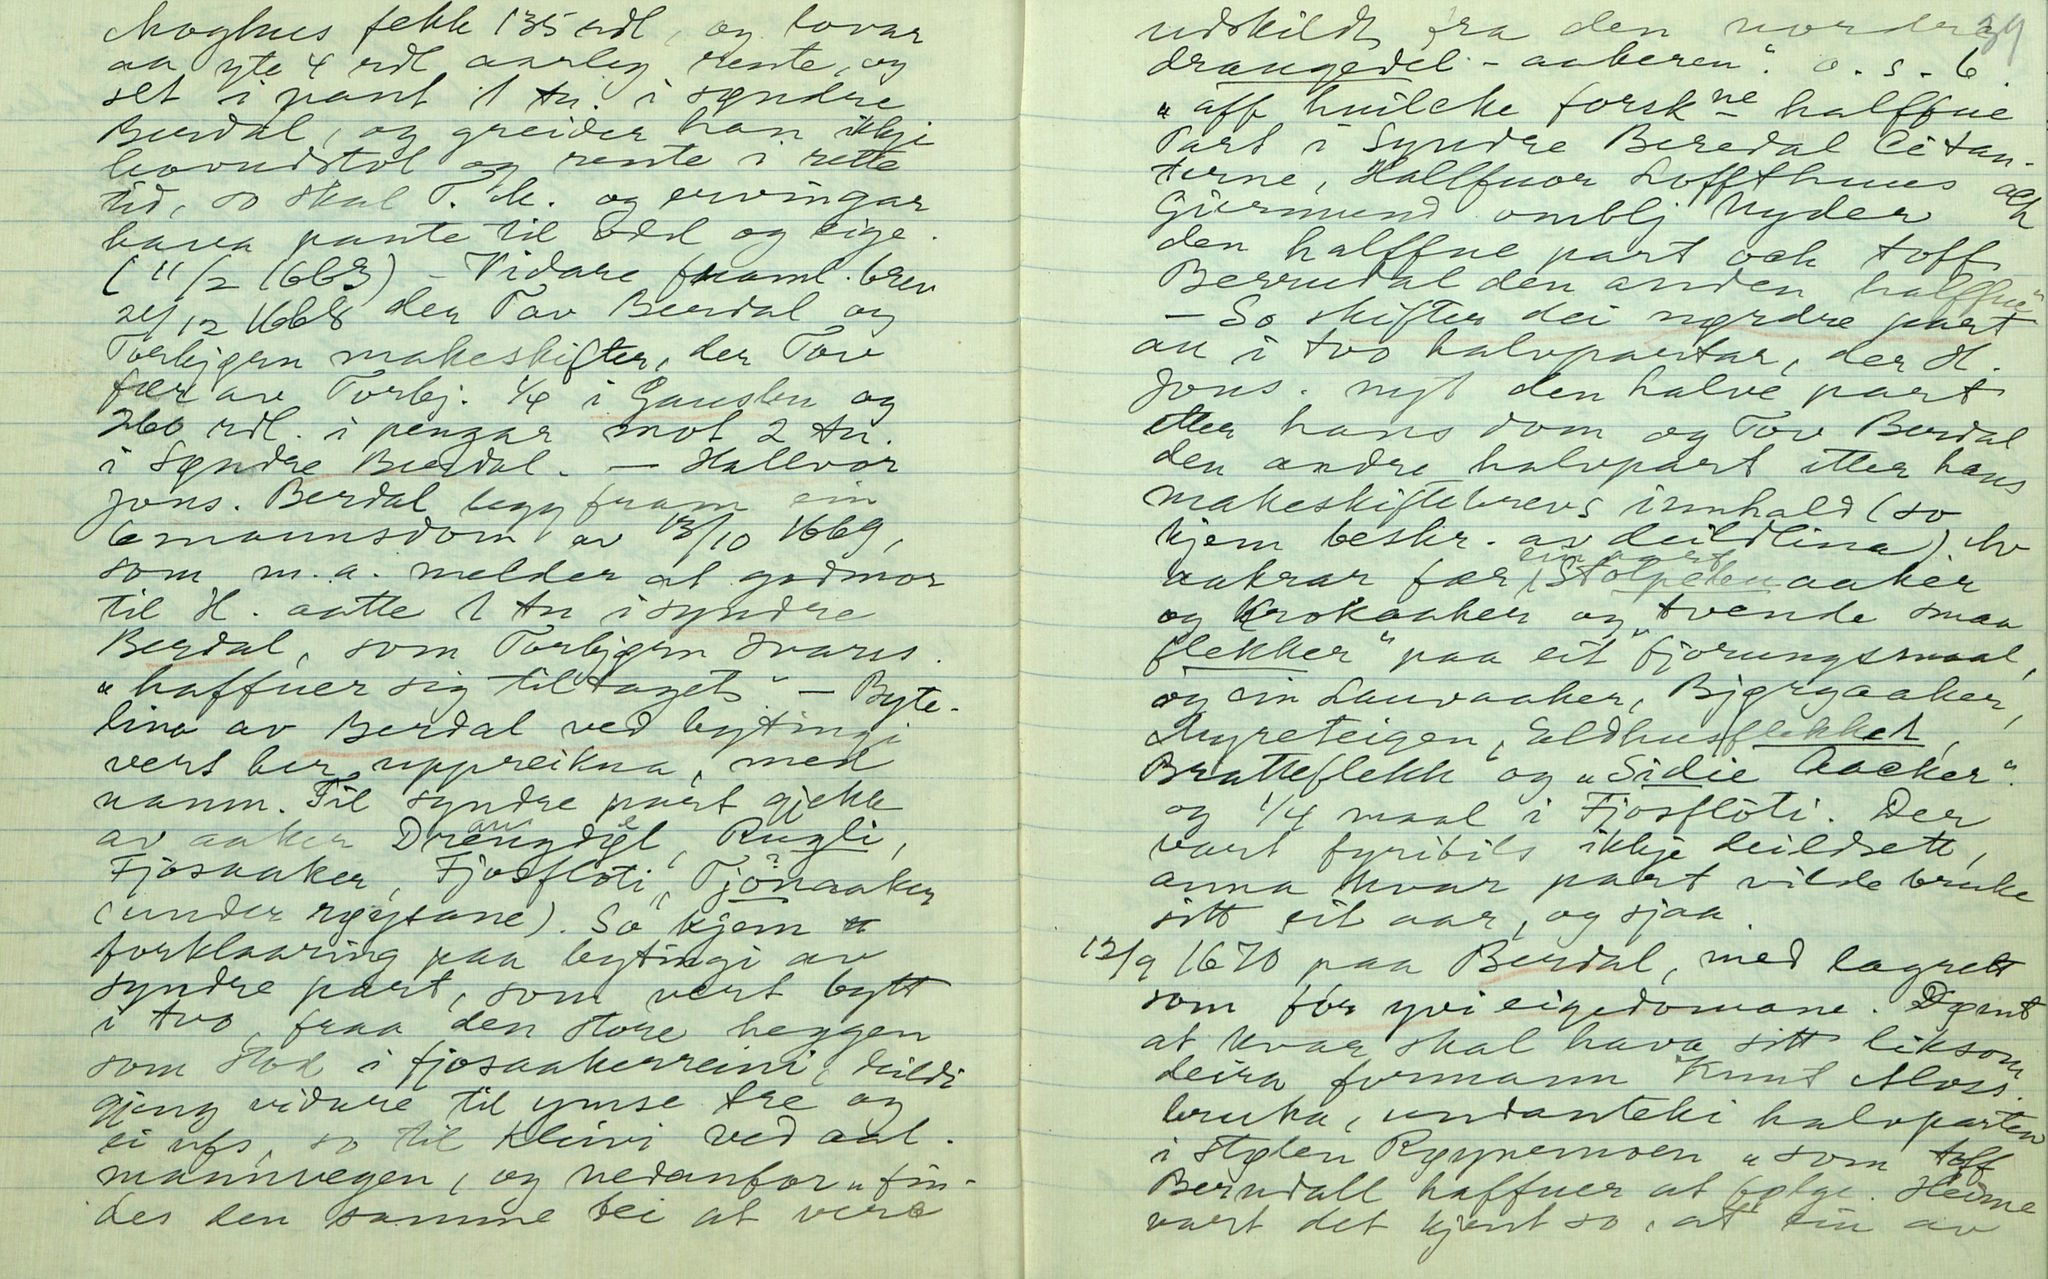 Moghus fekk 135 rdl, og lovar
aa yte 4 rdl aarleg rente, og
set i pant 1 tn. i syndre
Berdal, og greider han ikkje
hovudstol og rente i rette
tid, so skal T. M. og ervingar
hava pante til odel og eige.
(11/2 1663) – Vidare framl. brev
21/12 1668 der Tov Berdal og
Torbjørn makeskifter, der Tov
fær av Torbj. 1/4 i Gausbu og
260 rdl. i pengar mot 2 tn.
i søndre Berdal. – Hallvor
Jons. Berdal legg fram ein
6 mannsdom av 13/10 1669,
som m.a. melder at godmor
til H. aatte 1 tn i syndre
Berdal, som Torbjørn svares.
"haffuer sig tiltaget" – Byte-
lina av Berdal ved bytingi
vert her uppreikna, med
namn. Til syndre part gjekk
av aaker Draugedel, Rugli,
Fjosaaker, Fjosflöti, Tjönaaker
(under røysane). So kjem
forklaaring paa bytingi av
syndre part, som vert bytt
i tvo, fraa den store heggen
som stod i fjosaakerreini, deildi
gjeng vidare til ymse tre og
ei ufs, so til Kleivi ved aal-
mannvegen, og nedanfor "fin-
des den samme tei at vere
39
udskildt fra den nordre
draugedel-aakeren". o.s.b.
"aff huilcke forskne halffue
Part i Syndre Beredal Citan-
terne, Hallfuor Loffthuus och
Giermund omblj Nyder
den halffue part och toff
Berrudal den anden halffue"
– So skifter dei nørdre part
au i tvo halvpartar, der H.
Jons. nyt den halve part
etter hans dom og Tov Berdal
den andre halvpart etter hans
makeskiftebrevs innhald (so
kjem beskr. av deildlina). Av
aakrar fær ein i Stolpeten aaker
og Krokaaker og "tvende smaa
flekker" paa eit fjorungsmaal,
og ein Lauvaaker, Bjørgaaker,
Myreteigen, Eldhusflekket,
Bratteflekk og "Sidie Aacker".
og 1/4 maal i Fjosflöti. Der
vart fyribils ikkje deildsett,
anna kvar part vilde bruke
sitt eit aar, og sjaa
12/9 1670 paa Berdal, med lagrett
som fór yvi eigedomane. Dømt
at kvar skal hava sitt liksom
deira formann Knut Moss.
bruka, undanteki halvparten
i stølen Røynemoen "som toff
Berudall haffuer at følge. Heime
vart det kjent so, at ein av